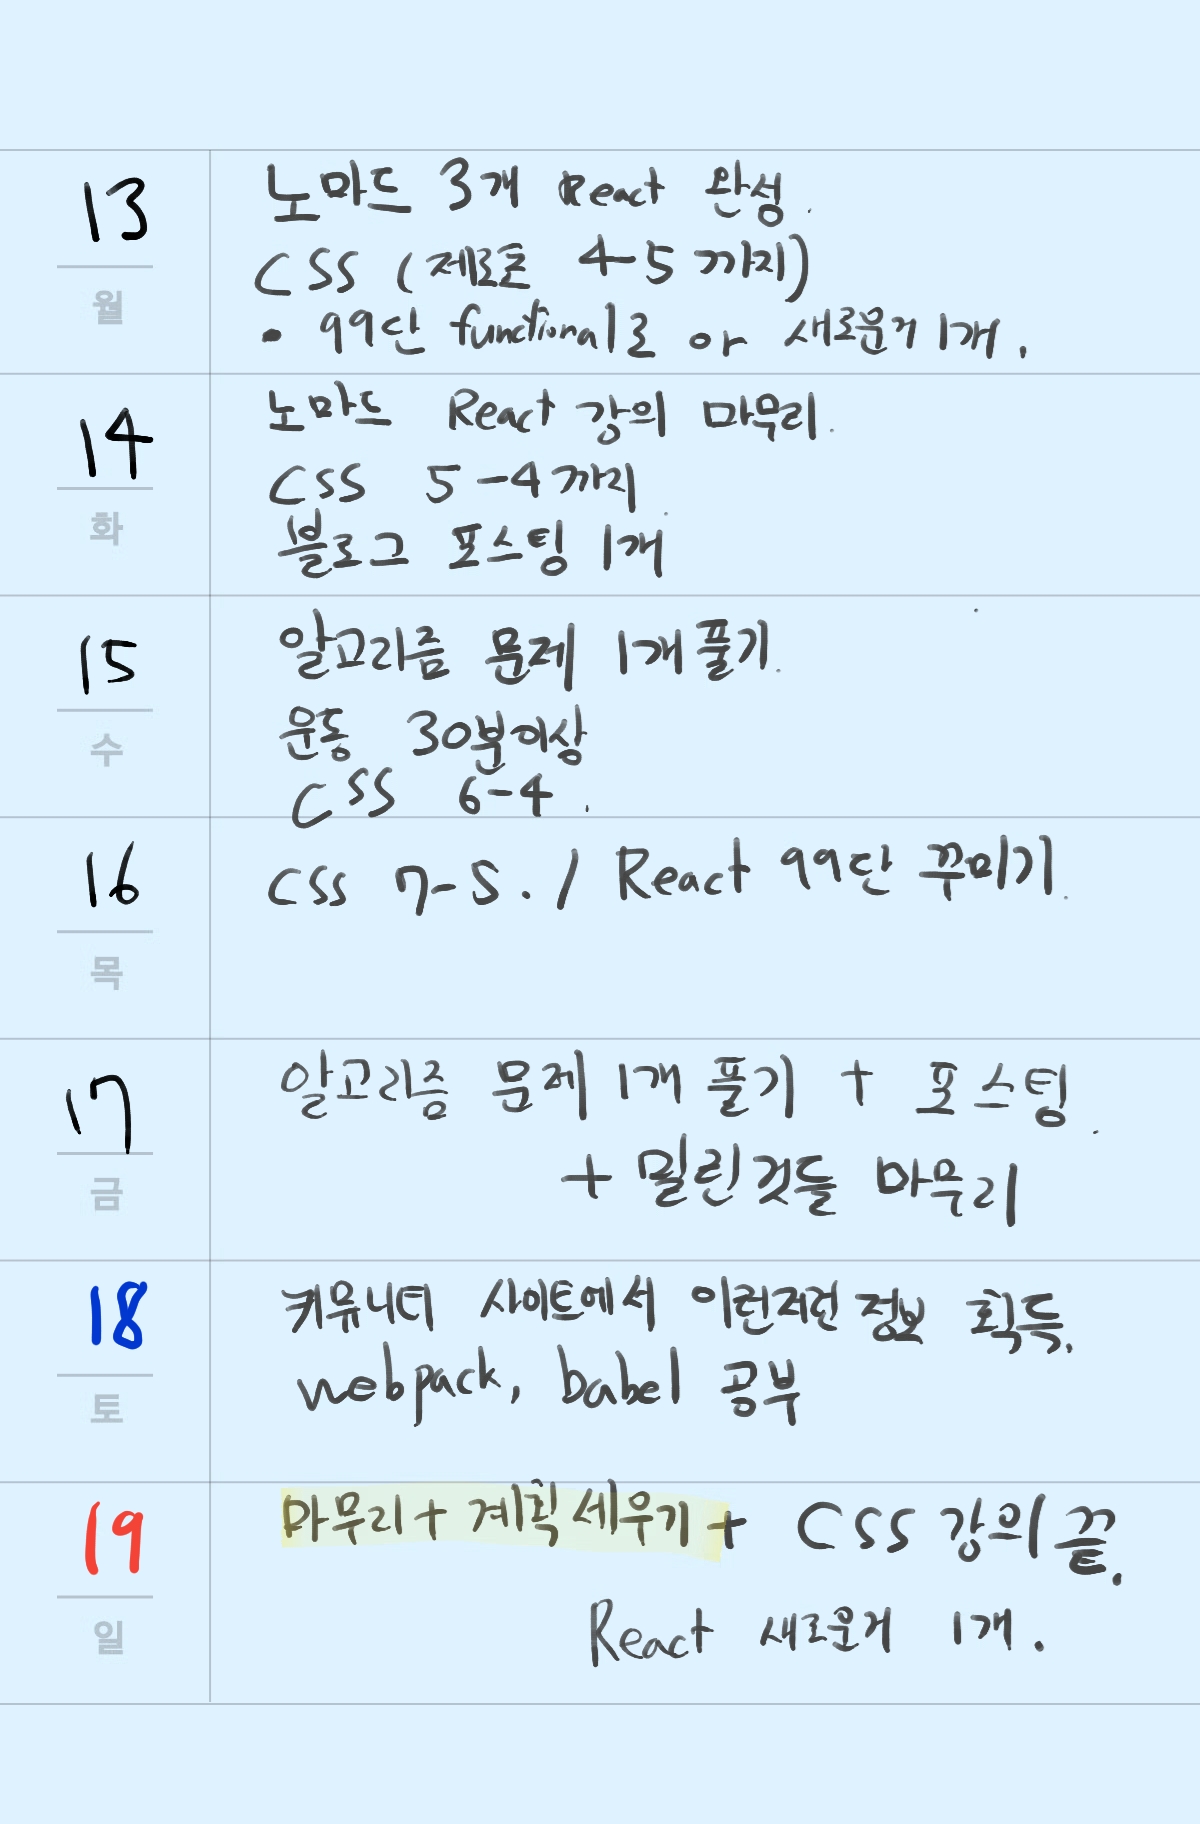 13
월
노마드 3개 React 완성.
CSS (제로초 4-5 까지)
• 99단 functional로 or 새로운거 1개.
14
화
노마드 React 강의 마무리.
CSS 5-4까지
블로그 포스팅 1개
15
수
알고리즘 문제 1개 풀기.
운동 30분이상
CSS 6-4.
16
목
CSS 7-5. / React 99단 꾸미기.
17
금
알고리즘 문제 1개 풀기 + 포스팅.
+ 밀린것들 마무리
18
토
커뮤니티 사이트에서 이런저런 정보 획득.
webpack, babel 공부
19
일
마무리 + 계획 세우기 + CSS 강의 끝.
React 새로운거 1개.